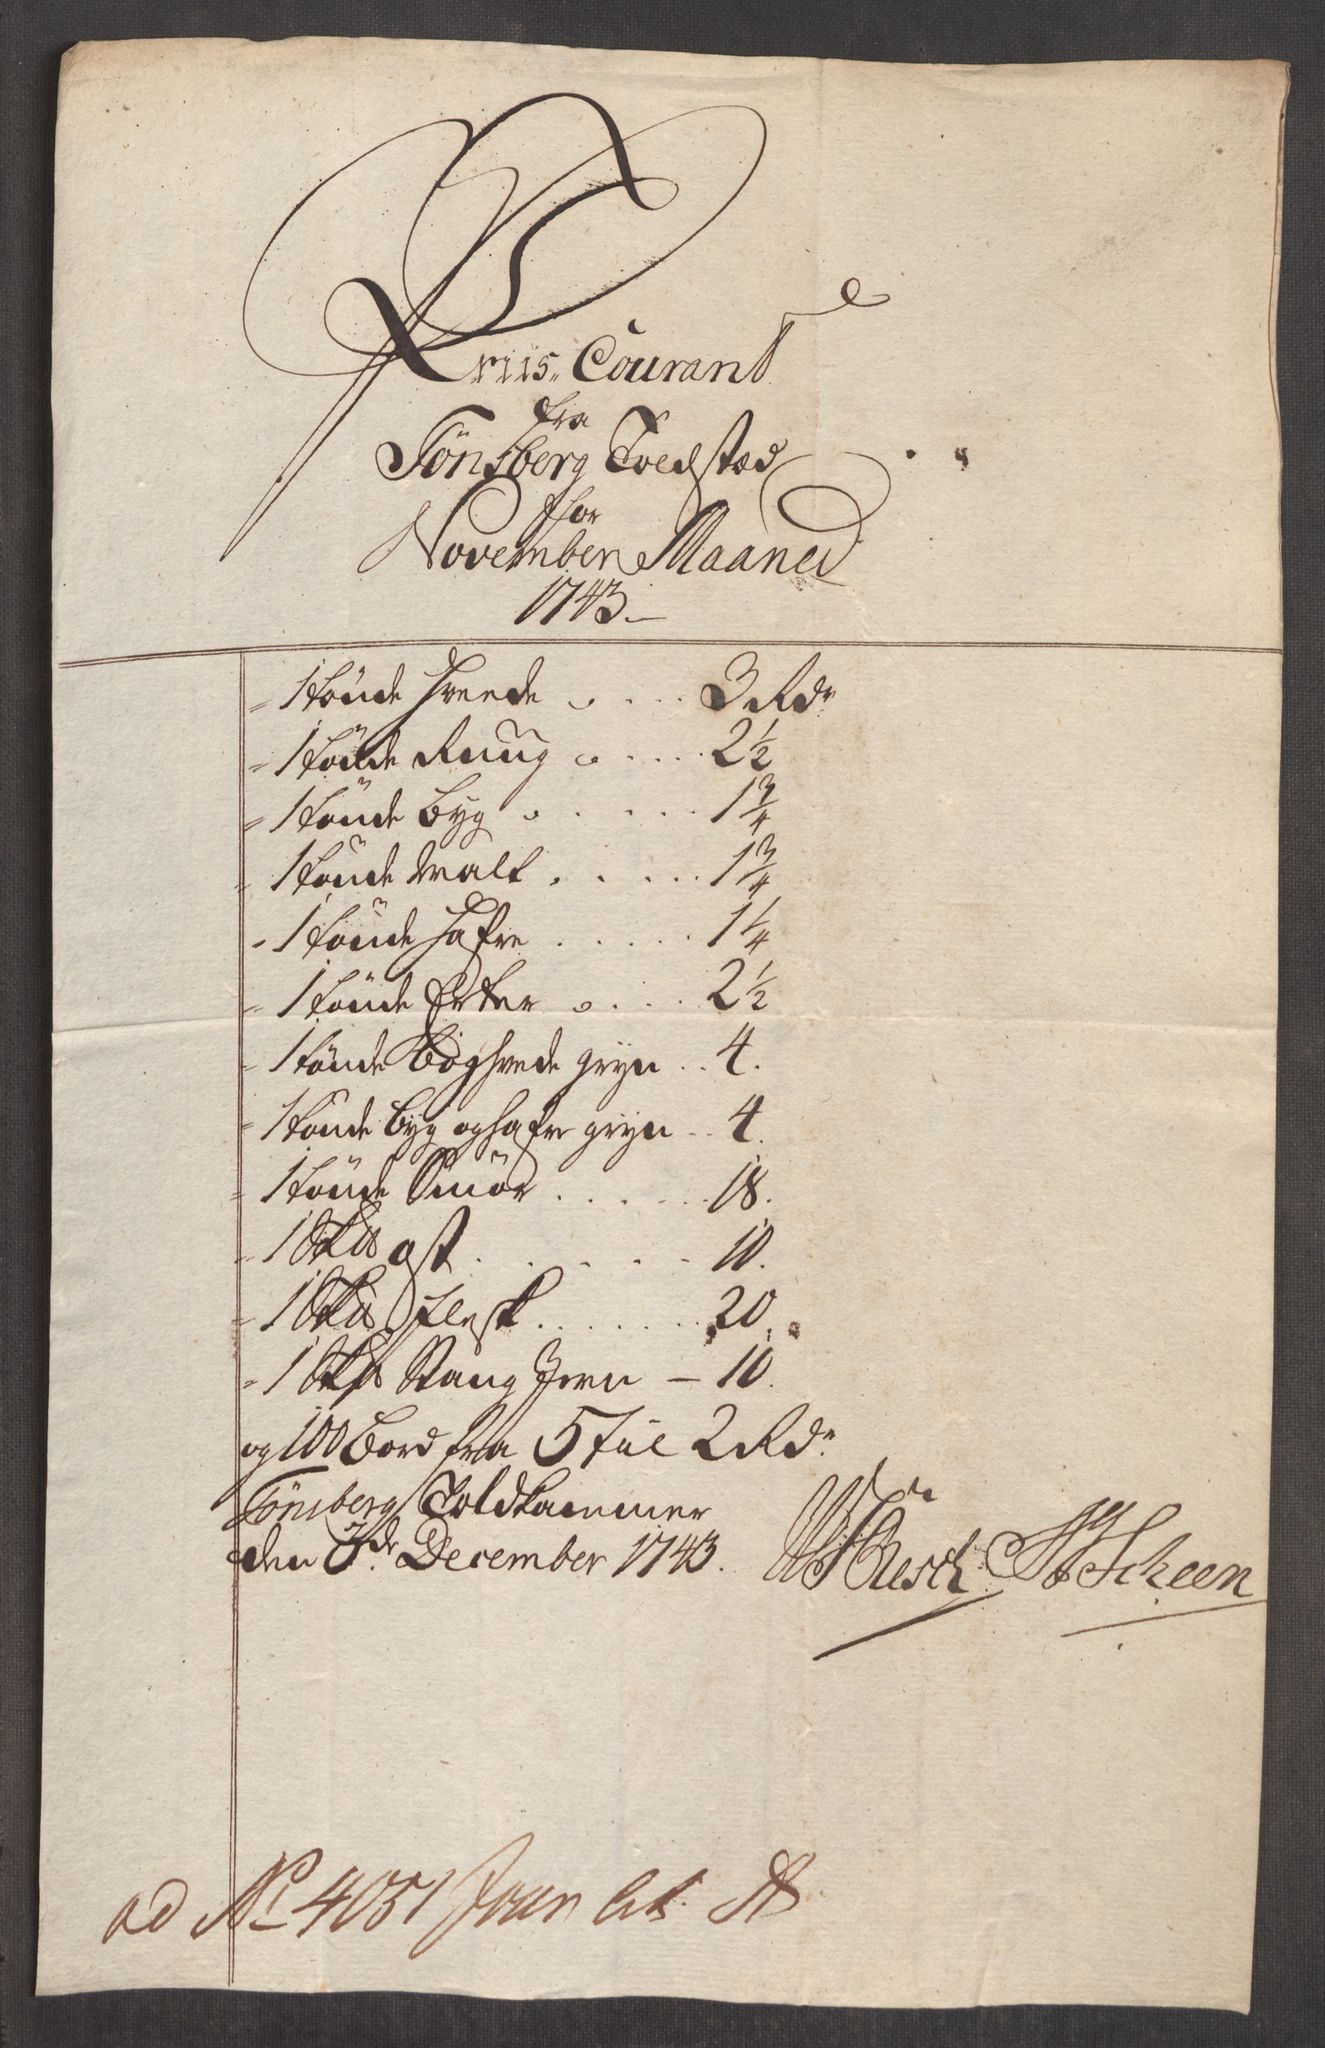 Priis Courant
fra
Tönsberg Toldstæd
for
November Maaned
1743.
1 tönde Hveede 3 Rdr
1 tönde Ruug 2½
1 tönde Byg 1¾
1 tönde Malt 1¾
1 tönde Hafre 1¼
1 tönde Erter 2½
1 tönde Boghvede gryn 4.
1 tönde Byg og Hafre gryn 4.
1 tönde Smör 18.
1 Sk℔ ost 10.
1 Sk℔ Flesk 20.
1 Sk℔ Stang Jern – 10.
og 100 Bord fra 5 til 2 Rdr
Tönsberg Toldkammer
den 3de December 1743.
Resch
Scheen
ad No 4051 Jour lit. A